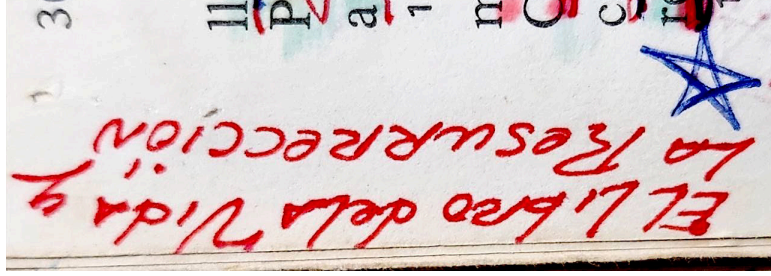 EL Libro dela Vida y
La Resurrección